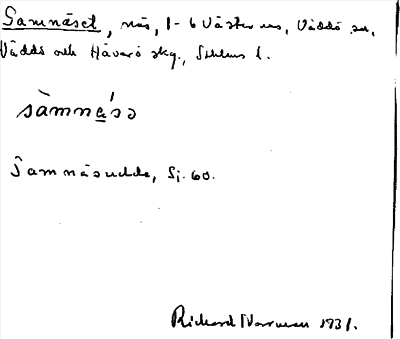 Samnäset, näs, 1-6 Västernäs, Väddö sn,
Väddö och Häverö skg., Sthlms l.
sàmnä́sə
Samnäsudde, Sj. 60.
Rickard Norman 1931.